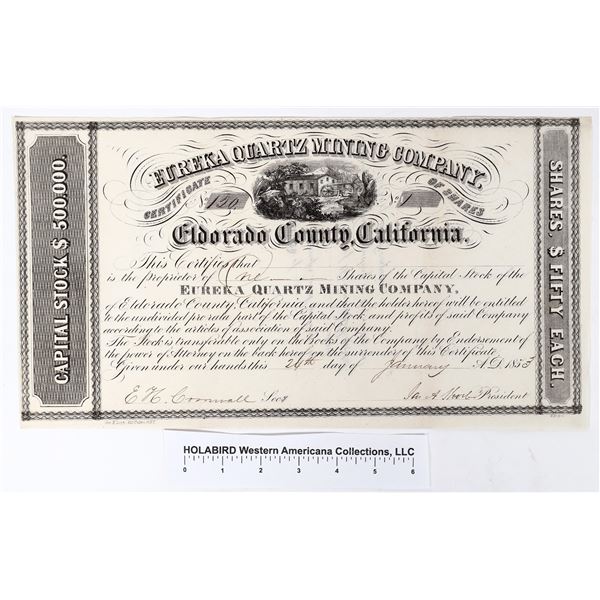 EUREKA QUARTZ MINING COMPANY,
CERTIFICATE 120 No. 1 OF SHARES
Eldorado County, California.
CAPITAL STOCK $ 500,000.
SHARES, $ FIFTY EACH.
This Certifies that
is the Proprietor of One Shares of the Capital Stock of the
EUREKA QUARTZ MINING COMPANY,
of Eldorado County, California, and that the holder hereof will be entitled
to the undivided pro rata part of the Capital Stock and profits of said Company
according to the articles of association of said Company.
The Stock is transferable only on the Books of the Company by Endorsement of
the power of Attorney on the back hereof on the surrender of this Certificate.
Given under our hands this 24th day of January A.D. 1853
E H Cornwall Secy Jas A President
HOLABIRD Western Americana Collections, LLC
0 1 2 3 4 5 6